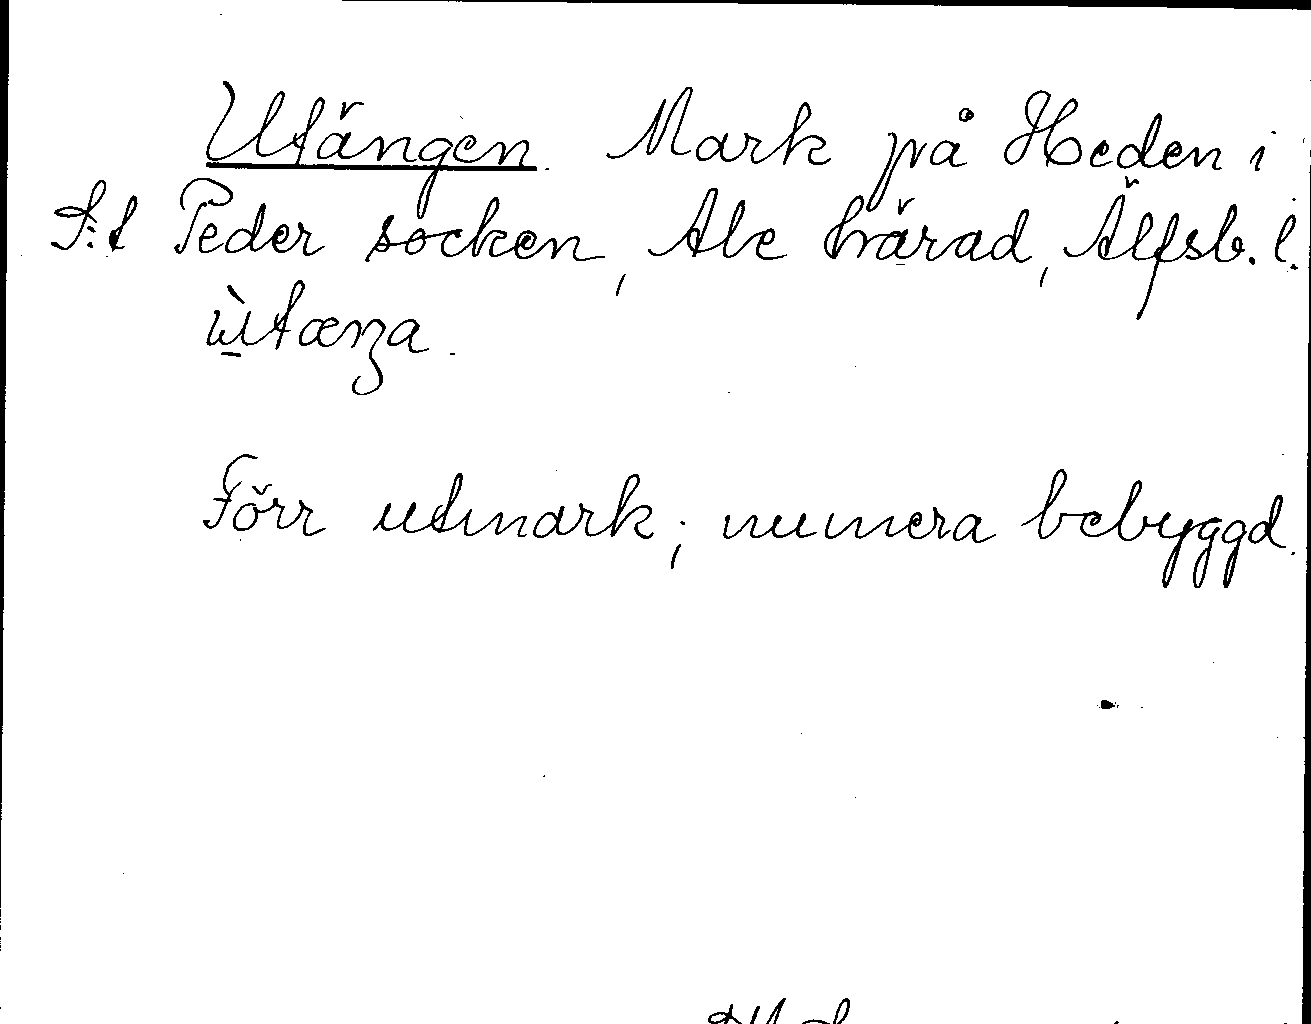 Utängen. Mark på Heden i
S:t Peder socken, Ale härad, Älfsb. l.
ùtæŋa.
Förr utmark; numera bebyggd.